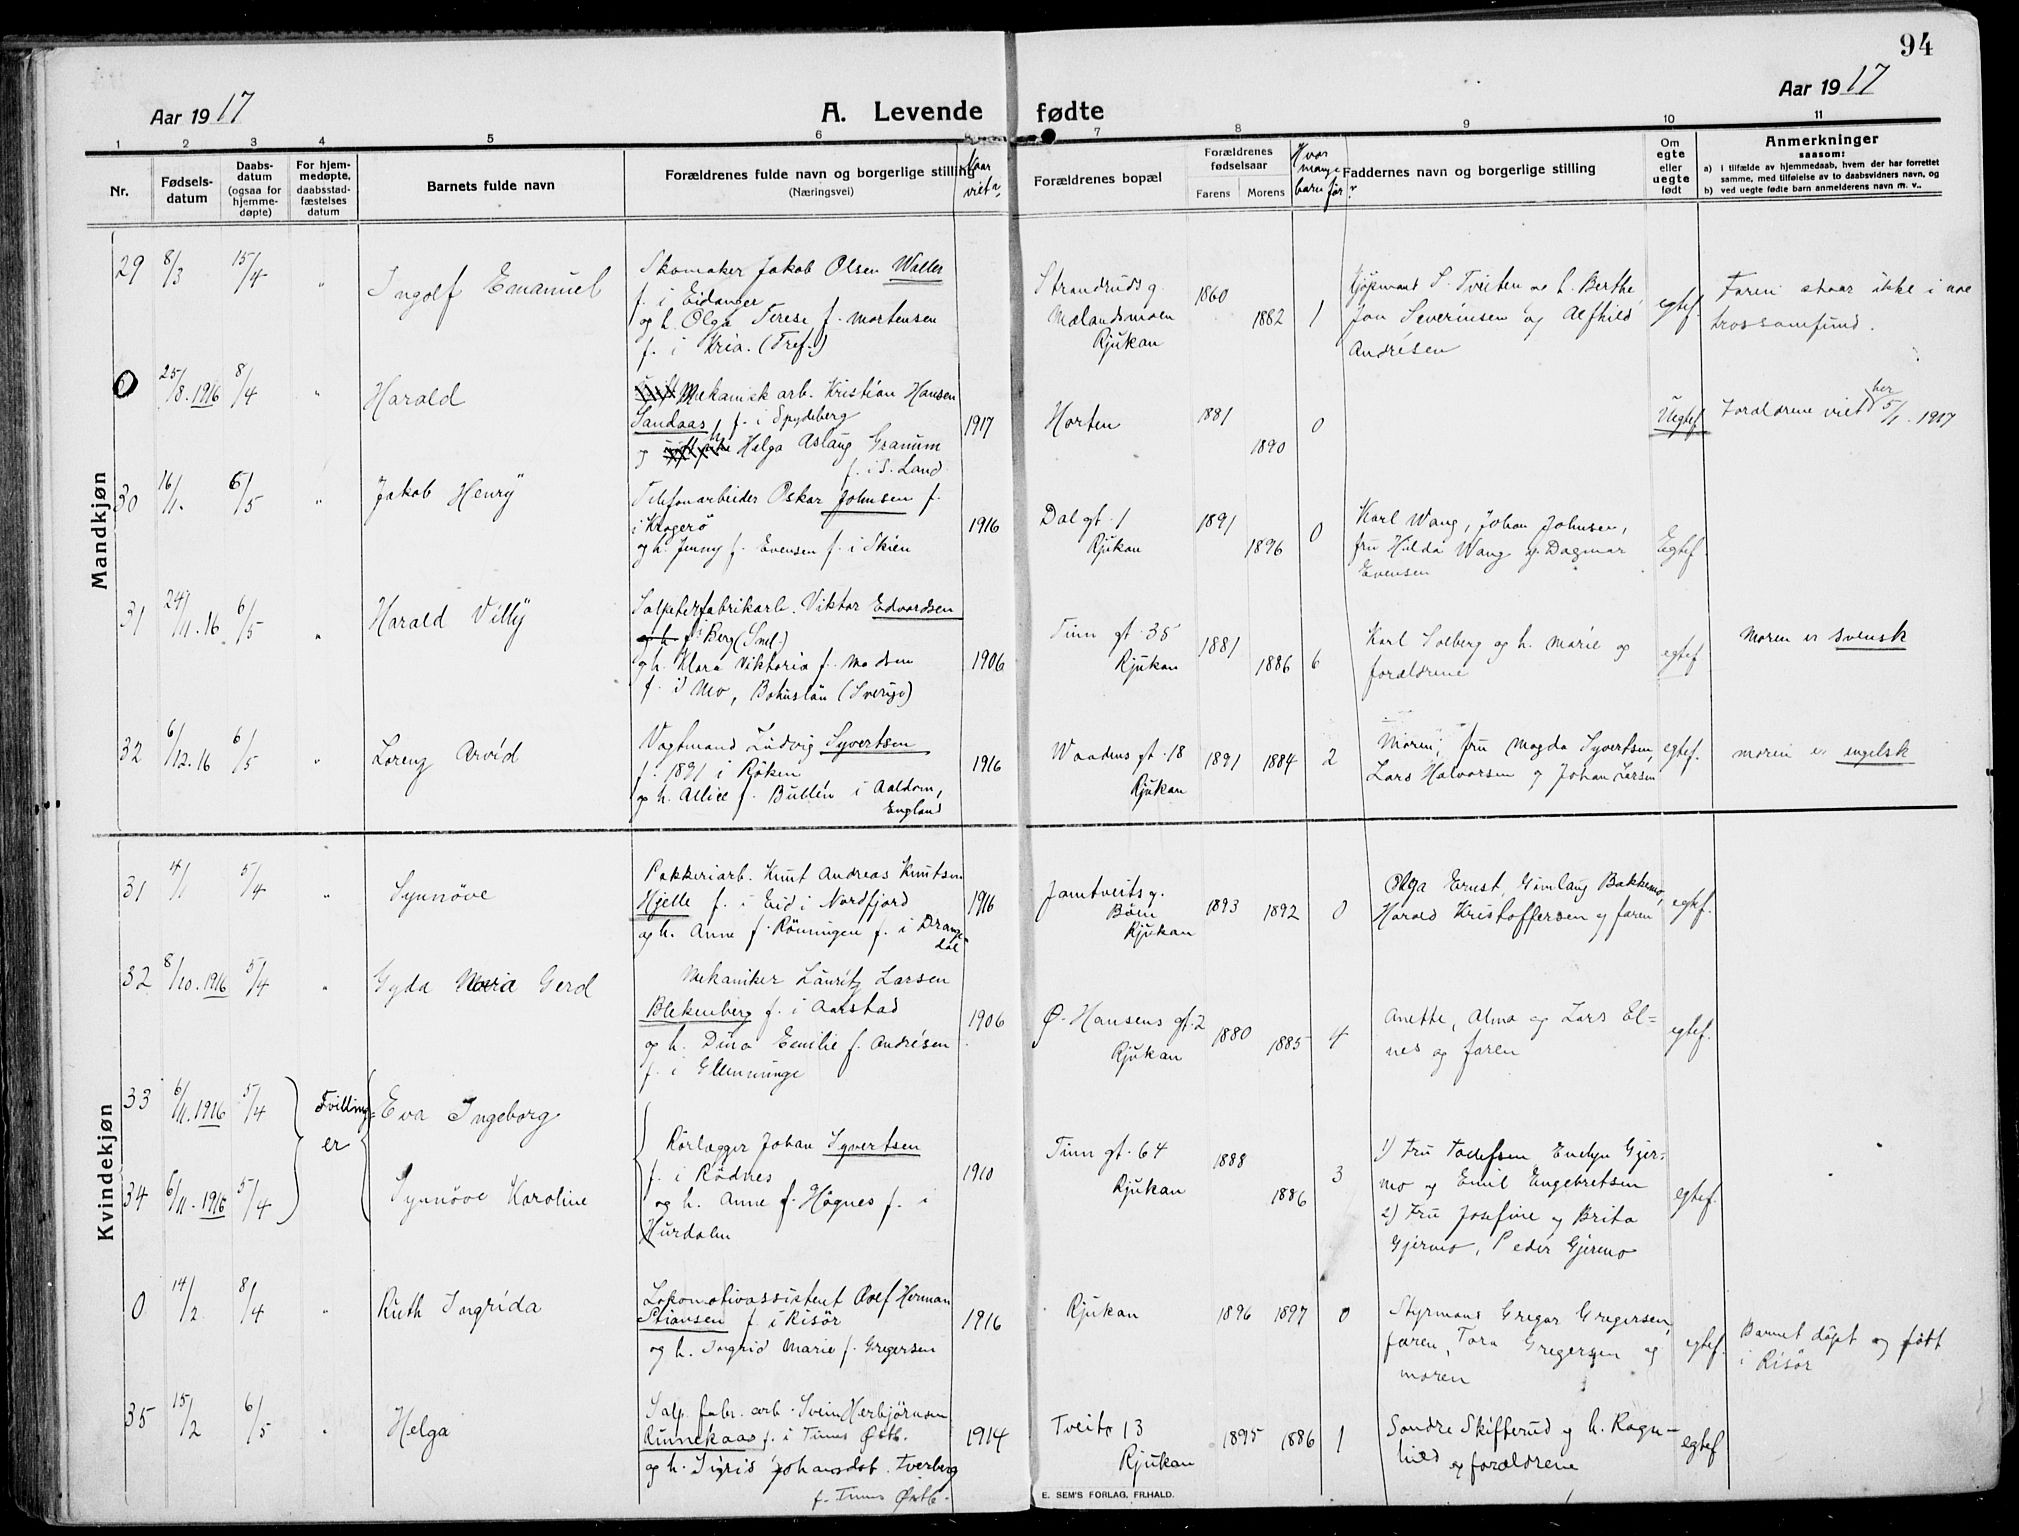 94
Aar 1917
A. Levende fødte
Aar 1917
1 2 3 4 5 6 7 8 9 10 11
Nr.
Fødsels-
datum
Daabs-
datum
(ogsaa for
hjemme-
døpte)
For hjem-
medøpte,
daabsstad-
fæstelses
datum
Barnets fulde navn
Forældrenes fulde navn og borgerlige stilling
(Næringsvei)
Naar
viet?
Forældrenes bopæl
Forældrenes
fødselsaar
Farens Morens
Hvor
mange
barn før?
Faddernes navn og borgerlige stilling
Om
egte
eller
uegte
født
Anmerkninger
saasom:
a) I tilfælde av hjemmedaab, hvem der har forrettet
samme, med tilføielse av to daabsvidners navn, og
b) ved uegte fødte barn anmelderens navn m. v..
Mandkjøn
29 8/3 15/4 " Ingolf Emanuel
Skomaker Jakob Olsen Waller
f. i Eidanger
og h. Olga Terese f. Mortensen
f. i Kria. (Tref.)
Strandruds g.
Mælandsmoen
Rjukan
1860 1882 1
S. Tveiten og h. Berthe,
Jon Severinsen og Alfhild
Andrésen
egtef.
Faren staar ikke i noe
trossamfund.
0 25/8. 1916 8/4 " Harald
Mekanisk arb. Kristian Hansen
Sandaas f. i Spydeberg
og h. Helga Aslaug Granum
f. i S. Land
1917
Horten
1881 1890 0
Uegtef.
Forældrene viet her 5/1. 1917
30 16/1. 6/5 " Jakob Henry
Telefonarbeider Oskar Johnsen f.
i Kragerö
og h. Jenny f. Evensen f. i Skien
1916
Dal gt. 1
Rjukan
1891 1896 0
Karl Wang, Johan Johnsen,
fru Hilda Wang og Dagmar
Evensen
Egtef.
31 24/11. 16 6/5 " Harald Villy
Salpeterfabrikarb. Viktor Edvardsen
og h. f. i Berg (Sml.)
og h. Klara Viktoria f. Madsen
f. i Mo, Bohuslän (Sverige)
1906
Tinn gt. 35
Rjukan
1881 1886 6
Karl Solberg og h. Marie og
forældrene
egtef.
Moren er svensk
32 6/12. 16 6/5 " Lorenz Arvid
Vagtmand Ludvig Syvertsen
f. 1891 i Röken
og h. Allice f. Bullén i Aaldom,
England
1916
Waadens gt. 18
Rjukan
1891 1884 2
Moren, fru Magda Syvertsen,
Lars Halvorsen og Johan Larsen
egtef.
moren er engelsk
Kvindekjøn
31 4/1 5/4 " Synnöve
Pakkeriarb. Knut Andreas Knutsen
Hjelle f. i Eid i Nordfjord
og h. Anne f. Rönningen f. i Drange-
dal
1916
Jamtveits g.
Böen
Rjukan
1893 1892 0
Olga Ernst, Gunlaug Bakkemo,
Harald Kristoffersen og faren
egtef.
32 8/10. 1916 5/4 " Gyda Maria Gerd
Mekaniker Lauritz Larsen
Blekenberg f. i Aarstad
og h. Dina Emilie f. Andrésen
f. i Glemminge
1906
Ø. Hansens gt. 2
Rjukan
1880 1885 4
Anette, Alma og Lars El-
nes og faren
egtef.
33 6/11. 1916 5/4 Tvilling- Eva Ingeborg
er
34 6/11. 1916 5/4 Synnöve Karoline
Rörlægger Johan Syvertsen
f. i Rödnes
og h. Anne f. Högnes f. i
Hurdalen
1910
Tinn gt. 64
Rjukan
1888 1886 3
1) Fru Evelyn Gjer-
mo og Emil Engebretsen
2) Fru Josefine og Brita
Gjermo, Peder Gjermo
egtef.
0 14/2 8/4 " Ruth Ingrida
Lokomotivassistent Olef Herman
Stiansen f. i Risör
og h. Ingrid Marie f. Gregersen
1916
Rjukan
1896 1897 0
Styrmans Gregar Gregersen,
faren, Tora Gregersen og
moren
egtef.
Barnet döpt og född
i Risör
35 15/2 6/5 " Helga
Salp. fabr. arb. Svein Herbjörnsen
Rinnekaas f. i Tinns Østb.
og h. Sigrid Johansdot. Tverberg
f. Tinns Østb.
1914
Tveito 13
Rjukan
1895 1886 1
Sondre Skifterud og h. Ragn-
hild og forældrene
egtef
E. SEM'S FORLAG, FR.HALD.